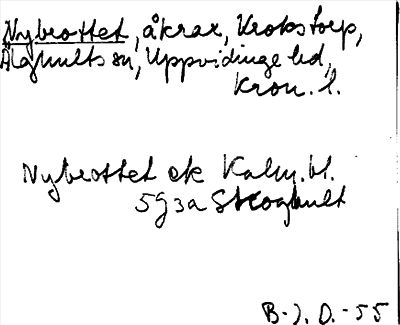 Nybrottet, åkrar, Krokstorp,
Älghults sn, Uppvidinge hd,
Kron. l.
Nybrottet ek Kalm. bl.
5g3a Skoghult
B-J. D. - 55